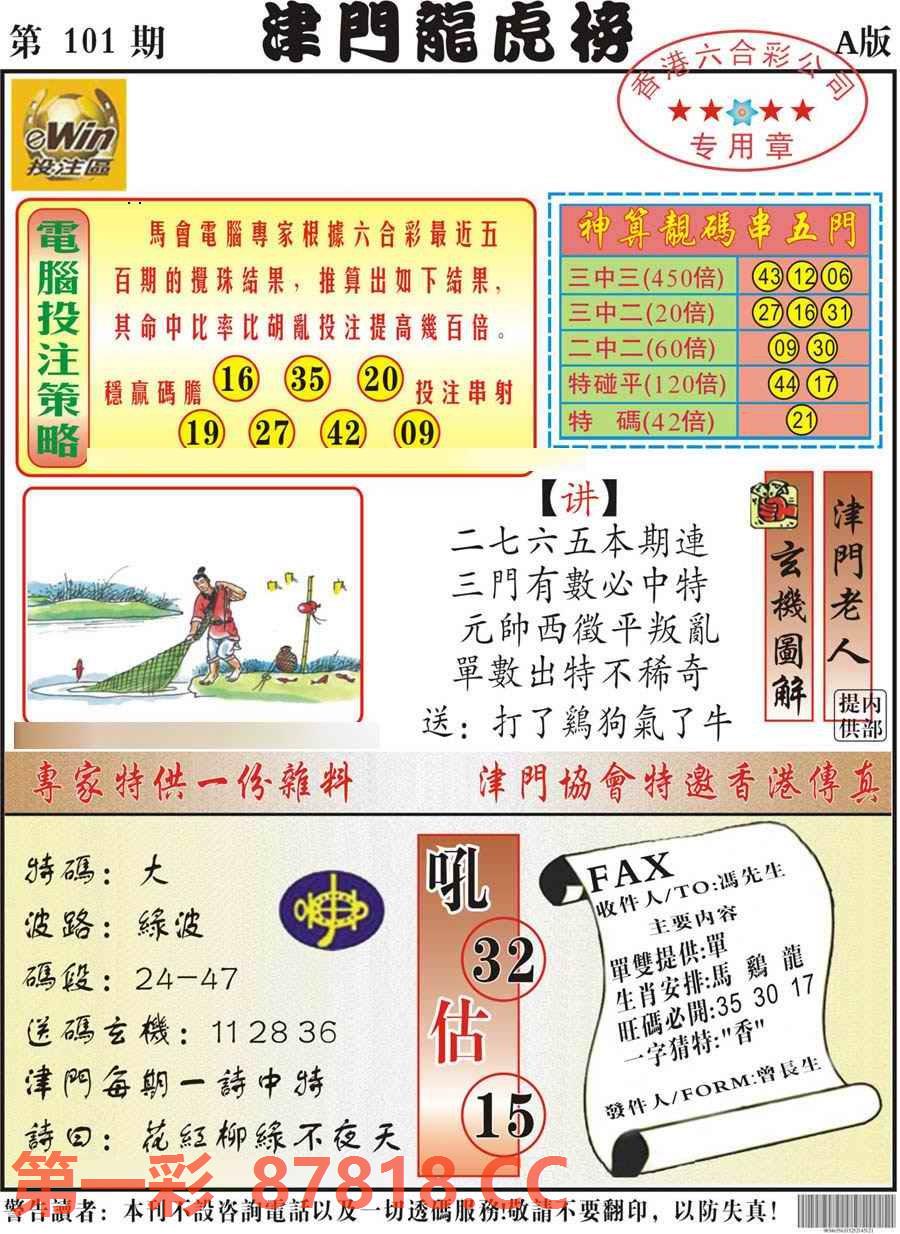 第 101 期
津門龍虎榜
A版
香港六合彩公司
专用章
eWin
投注區
電腦投注策略
馬會電腦專家根據六合彩最近五
百期的攪珠結果，推算出如下結果，
其命中比率比胡亂投注提高幾百倍。
穩贏碼膽 16 35 20 投注串射
19 27 42 09
神算靚碼串五門
三中三(450倍) 43 12 06
三中二(20倍) 27 16 31
二中二(60倍) 09 30
特碰平(120倍) 44 17
特 碼(42倍) 21
【讲】
二七六五本期連
三門有數必中特
元帥西徵平叛亂
單數出特不稀奇
送：打了鷄狗氣了牛
玄機圖解
津門老人
内部提供
專家特供一份雜料
津門協會特邀香港傳真
特碼：大
波路：綠波
碼段：24—47
送碼玄機：11 28 36
津門每期一詩中特
詩曰：花紅柳綠不夜天
吼
32
估
15
FAX
收件人/TO:馮先生
主要内容
單雙提供:單
生肖安排:馬 鷄 龍
旺碼必開:35 30 17
一字猜特:"香"
發件人/FORM:曾長生
第一彩 87818.CC
警告讀者：本刊不設咨詢電話以及一切透碼服務!敬請不要翻印，以防失真!